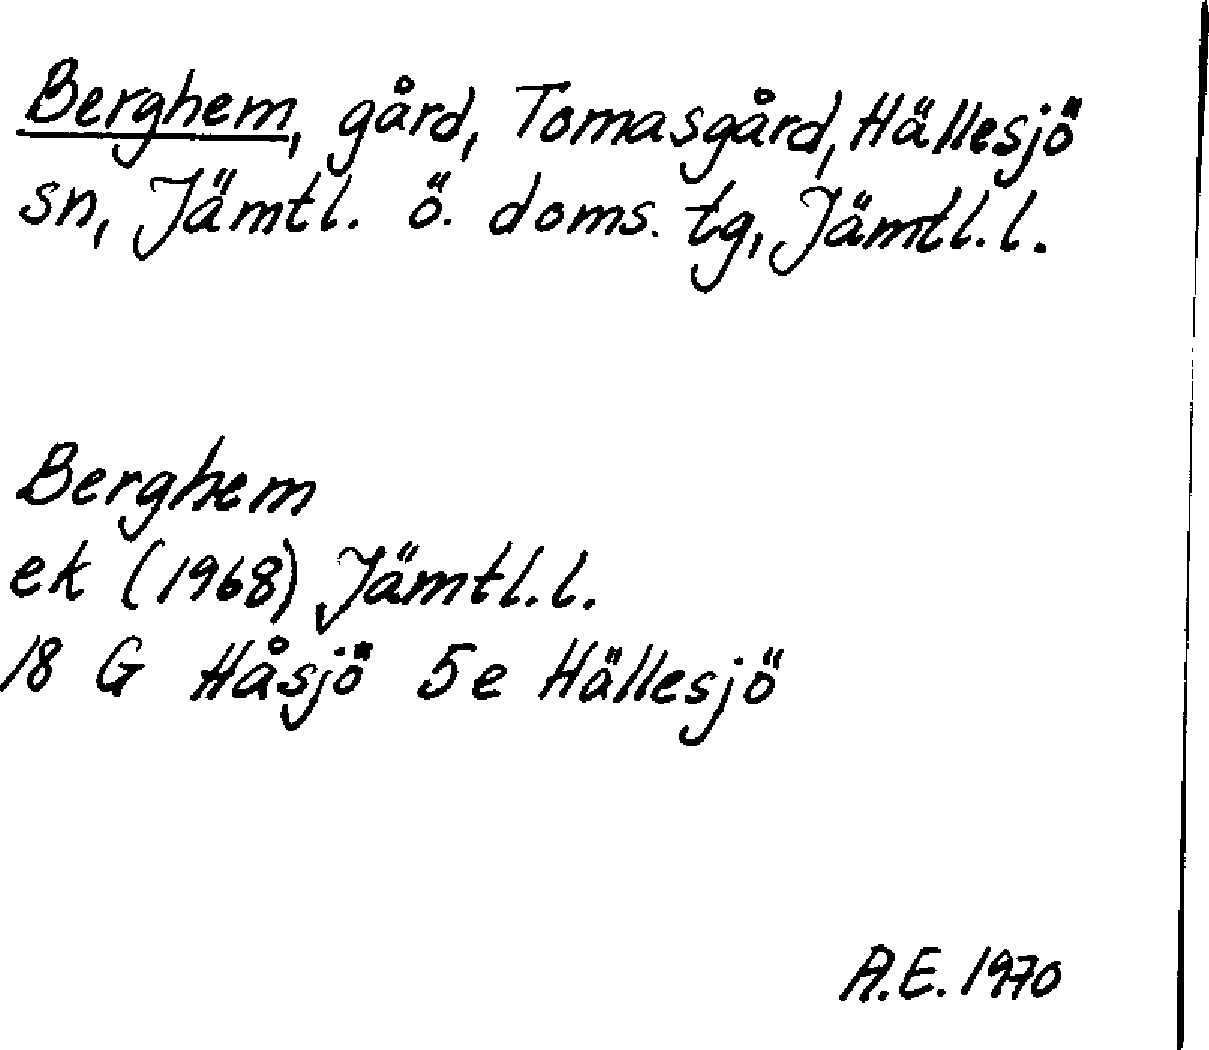 Berghem, gård, Tomasgård, Hällesjö
sn, Jämtl. ö. doms. tg, Jämtl. l.
Berghem
ek (1968) Jämtl. l.
18 G Håsjö 5e Hällesjö
A.E. 1970